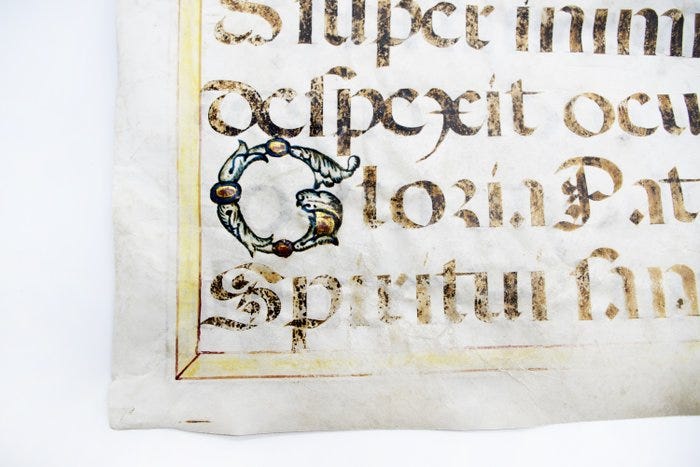 super inim
despexit ocu
Gloria Pat
Spiritui san